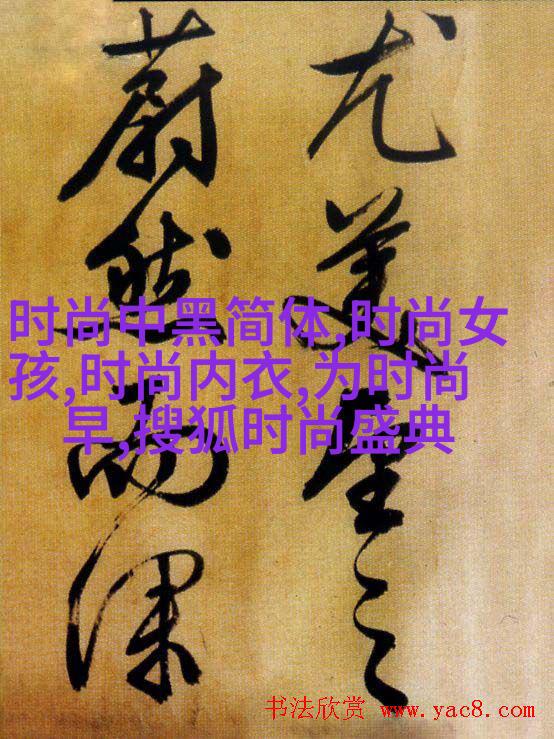 尤美望之
蔚然而深
时尚中黑简体,时尚女
孩,时尚内衣,为时尚
早,搜狐时尚盛典
书法欣赏 www.yac8.com